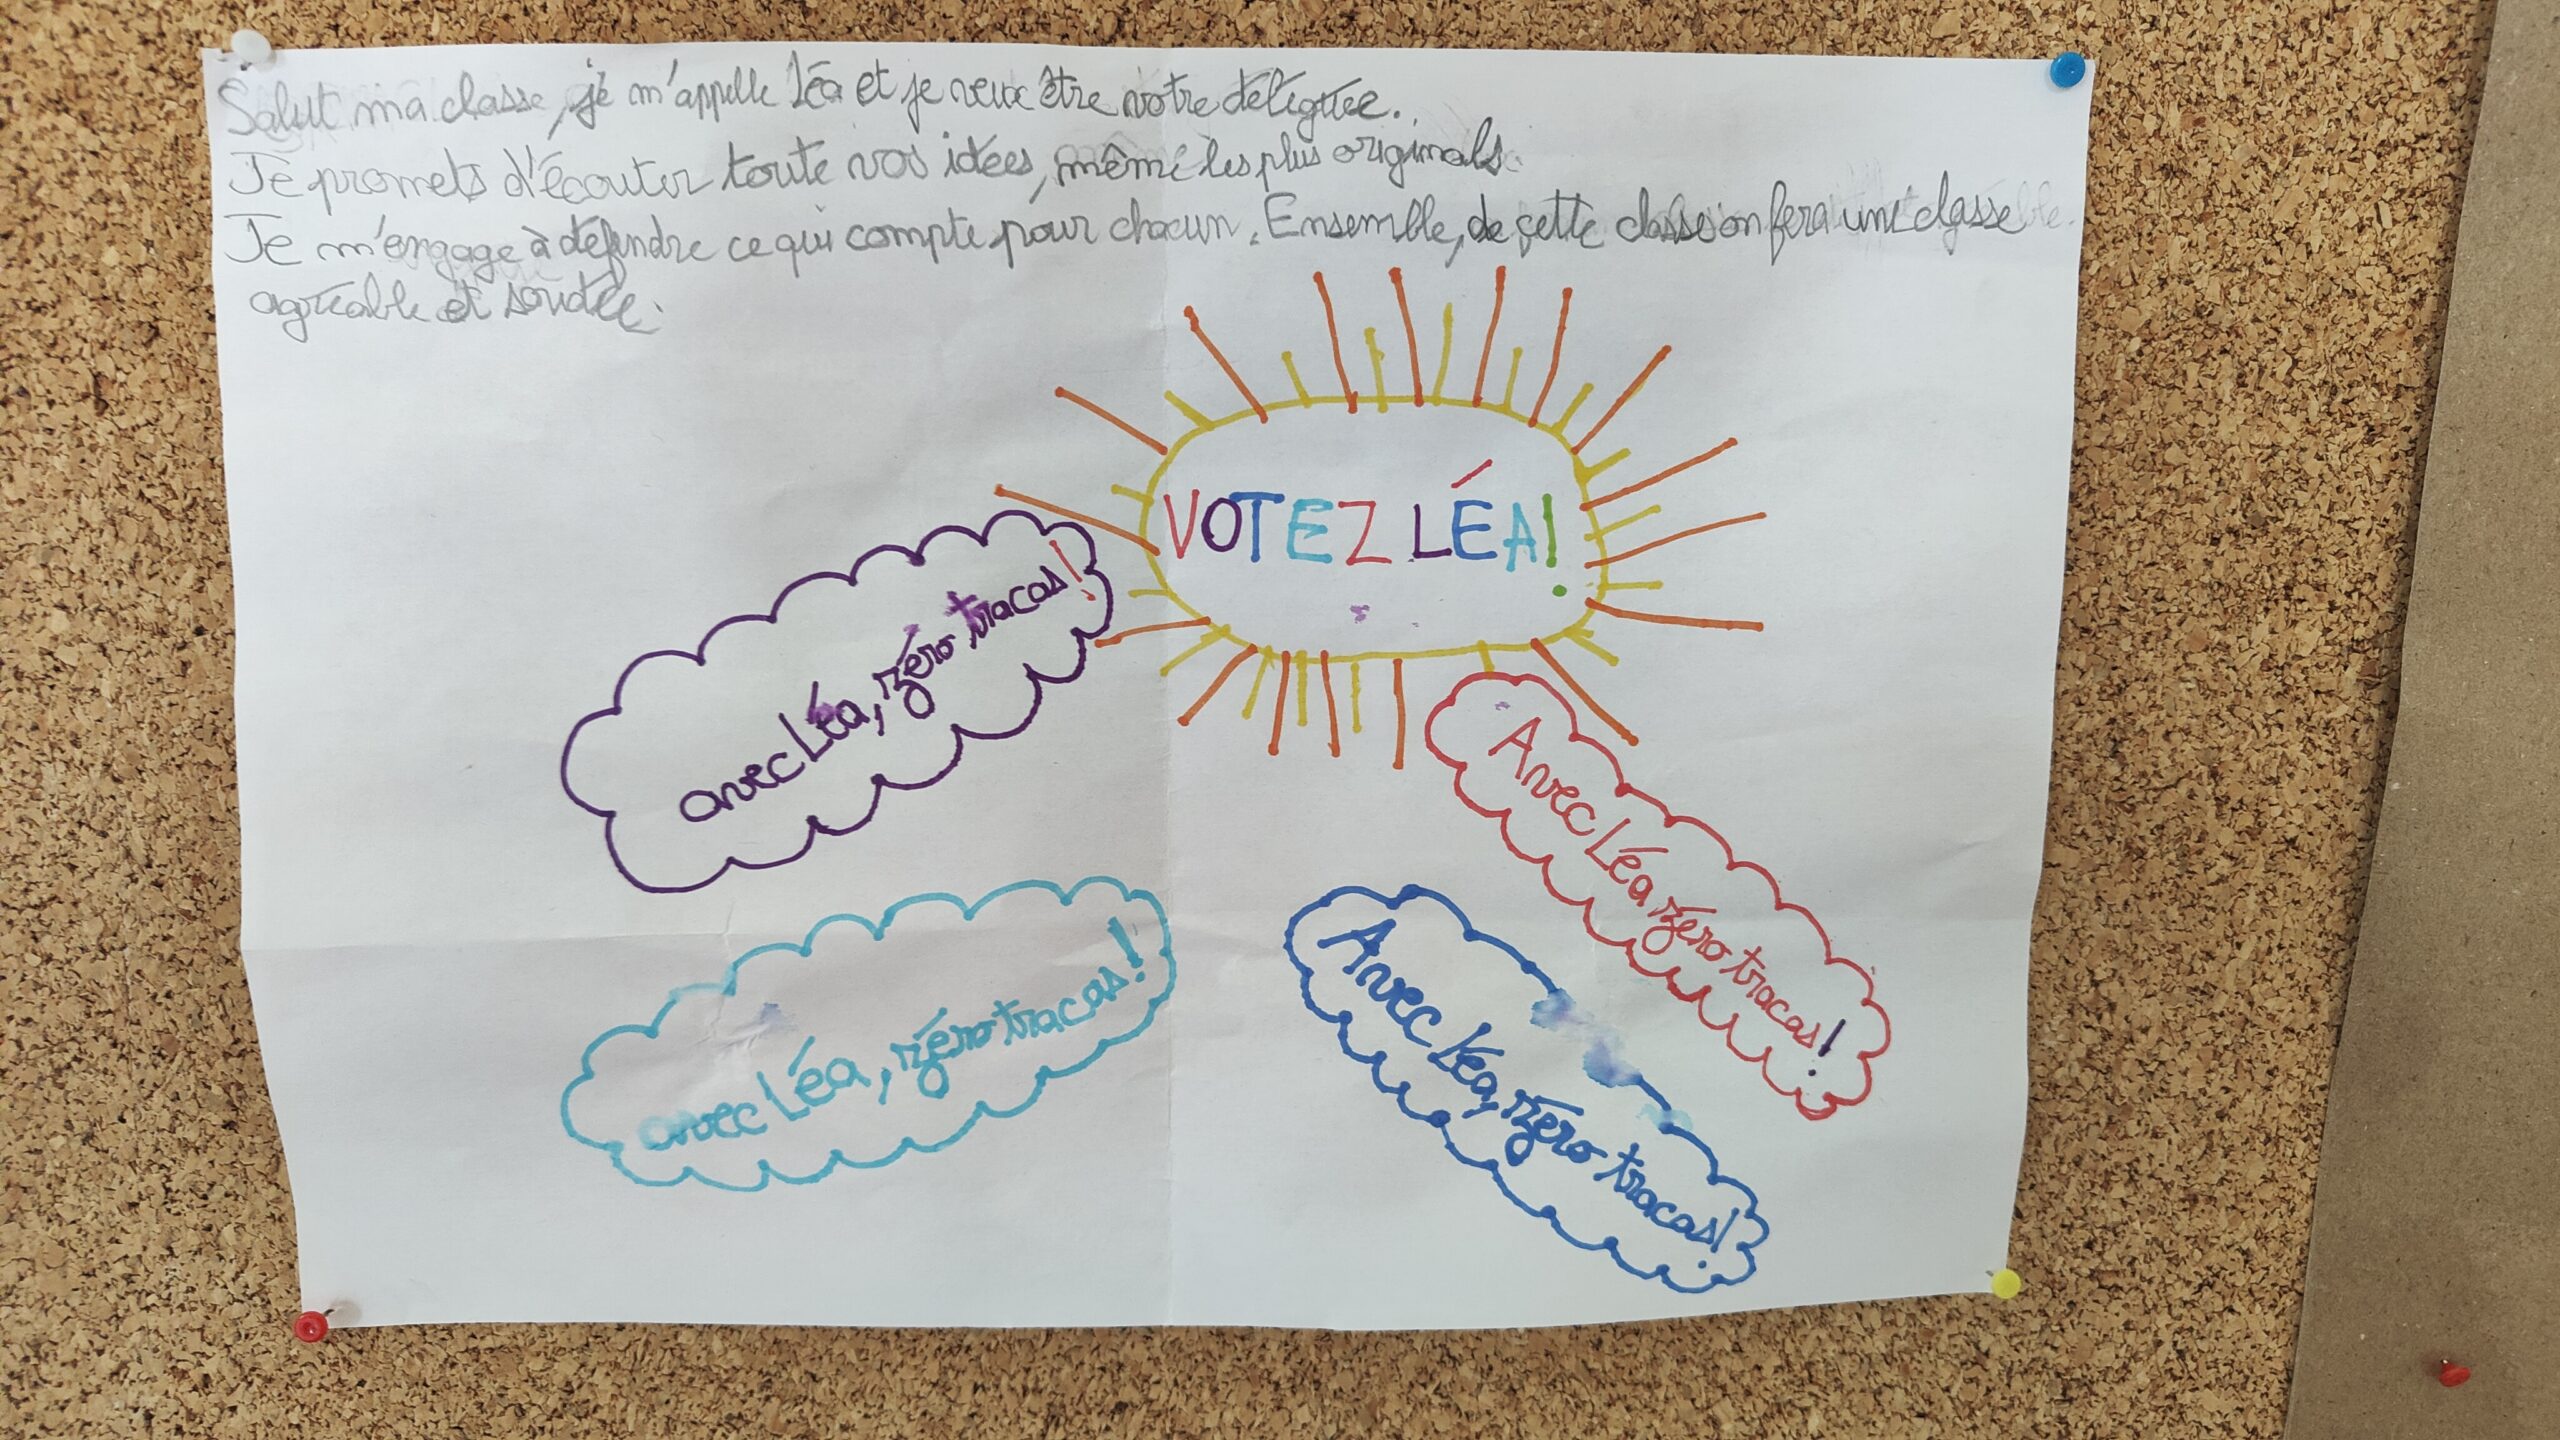 Salut ma classe, je m'appelle Léa et je veux être votre déléguée.
Je promets d'écouter toute vos idées, même les plus originals.
Je m'engage à défendre ce qui compte pour chacun. Ensemble, de cette classe on fera une classe
agréable et soudée.
VOTEZ LÉA!
avec Léa, zéro tracas!
Avec Léa zéro tracas!
avec Léa, zéro tracas!
Avec Léa, zéro tracas!